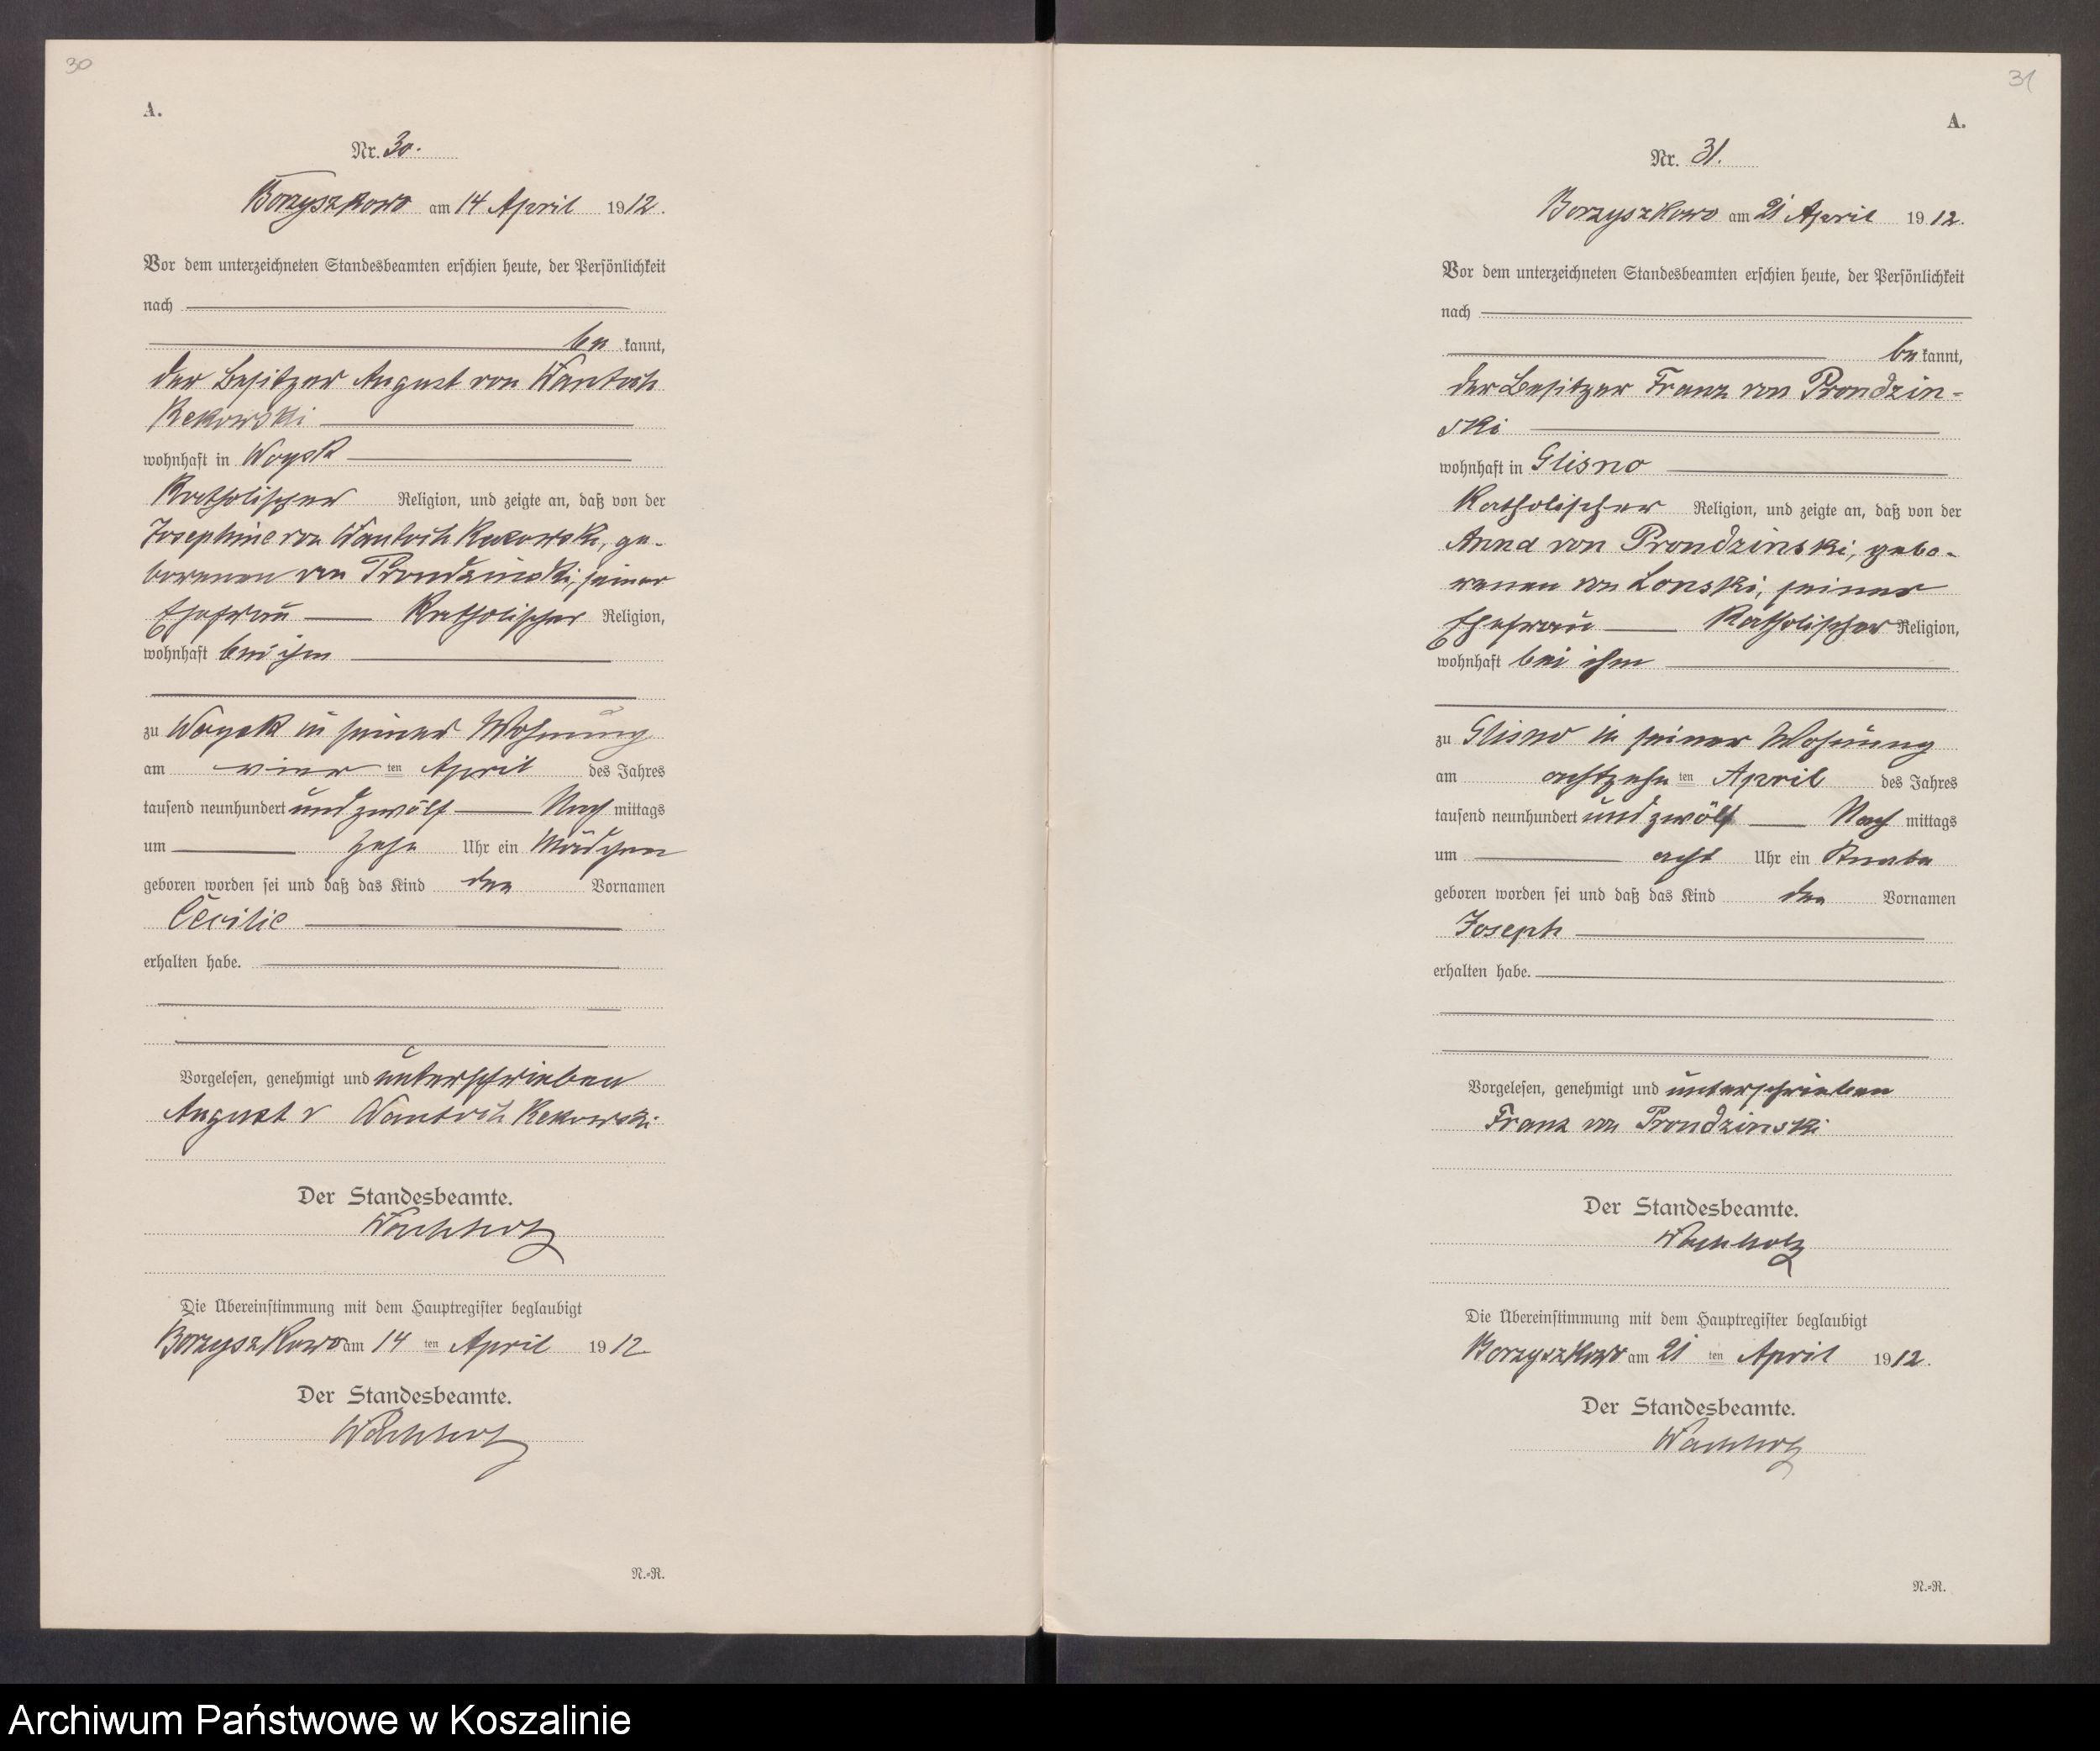 30
A.
Nr. 30.
Borzyszkowo am 14 April 1912.
Vor dem unterzeichneten Standesbeamten erschien heute, der Persönlichkeit
nach
be kannt,
der Besitzer August von Wantoch
Rekowski
wohnhaft in Woysk
Katholischer Religion, und zeigte an, daß von der
Josephine von Wantoch Rekowski, ge-
borenen von Prondzinski, seiner
Ehefrau Katholischer Religion,
wohnhaft bei ihm
zu Woysk in seiner Wohnung
am vier ten April des Jahres
tausend neunhundert und zwölf Nach mittags
um zehn Uhr ein Mädchen
geboren worden sei und daß das Kind den Vornamen
Cecilie
erhalten habe.
Vorgelesen, genehmigt und unterschrieben
August v Wantoch Rekowski
Der Standesbeamte.
Wachholz
Die Übereinstimmung mit dem Hauptregister beglaubigt
Borzyszkowo am 14 ten April 1912
Der Standesbeamte.
Wachholz
N.-R.
31
A.
Nr. 31.
Borzyszkowo am 21 April 1912.
Vor dem unterzeichneten Standesbeamten erschien heute, der Persönlichkeit
nach
be kannt,
der Besitzer Franz von Prondzin-
ski
wohnhaft in Glisno
Katholischer Religion, und zeigte an, daß von der
Anna von Prondzinski, gebo-
renen von Lonski, seiner
Ehefrau Katholischer Religion,
wohnhaft bei ihm
zu Glisno in seiner Wohnung
am achtzehn ten April des Jahres
tausend neunhundert und zwölf Nach mittags
um acht Uhr ein Knabe
geboren worden sei und daß das Kind den Vornamen
Joseph
erhalten habe.
Vorgelesen, genehmigt und unterschrieben
Franz von Prondzinski
Der Standesbeamte.
Wachholz
Die Übereinstimmung mit dem Hauptregister beglaubigt
Borzyszkowo am 21 ten April 1912.
Der Standesbeamte.
Wachholz
N.-R.
Archiwum Państwowe w Koszalinie